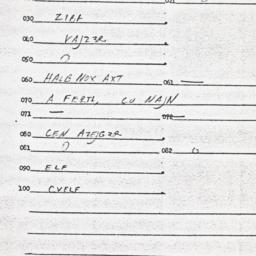 030 ZIRF
040 VAJZER
050 ?
060 HALB NOX AXT 061 —
070 A FERTL, CU NAJN
071 — 072 —
080 CEN
081 ? 082
090 ELF
100 CVELF